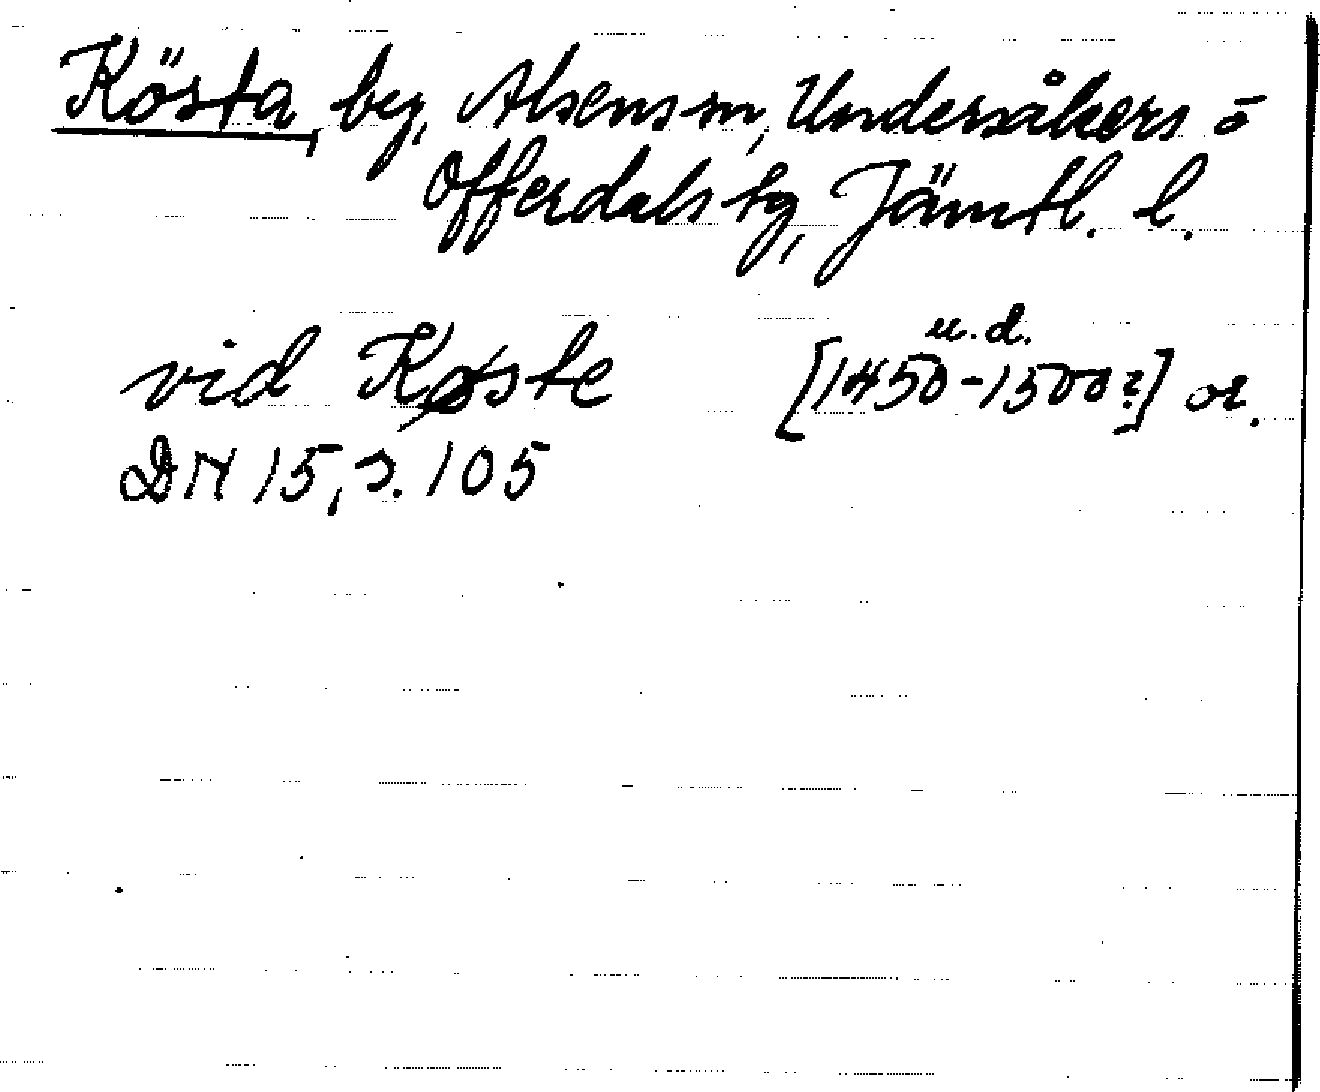 Kösta, by, Alsens sn, Undersåkers o
Offerdals tg, Jämtl. l.
u.d.
vid Køste [1450-1500?] or.
DN 15, s. 105